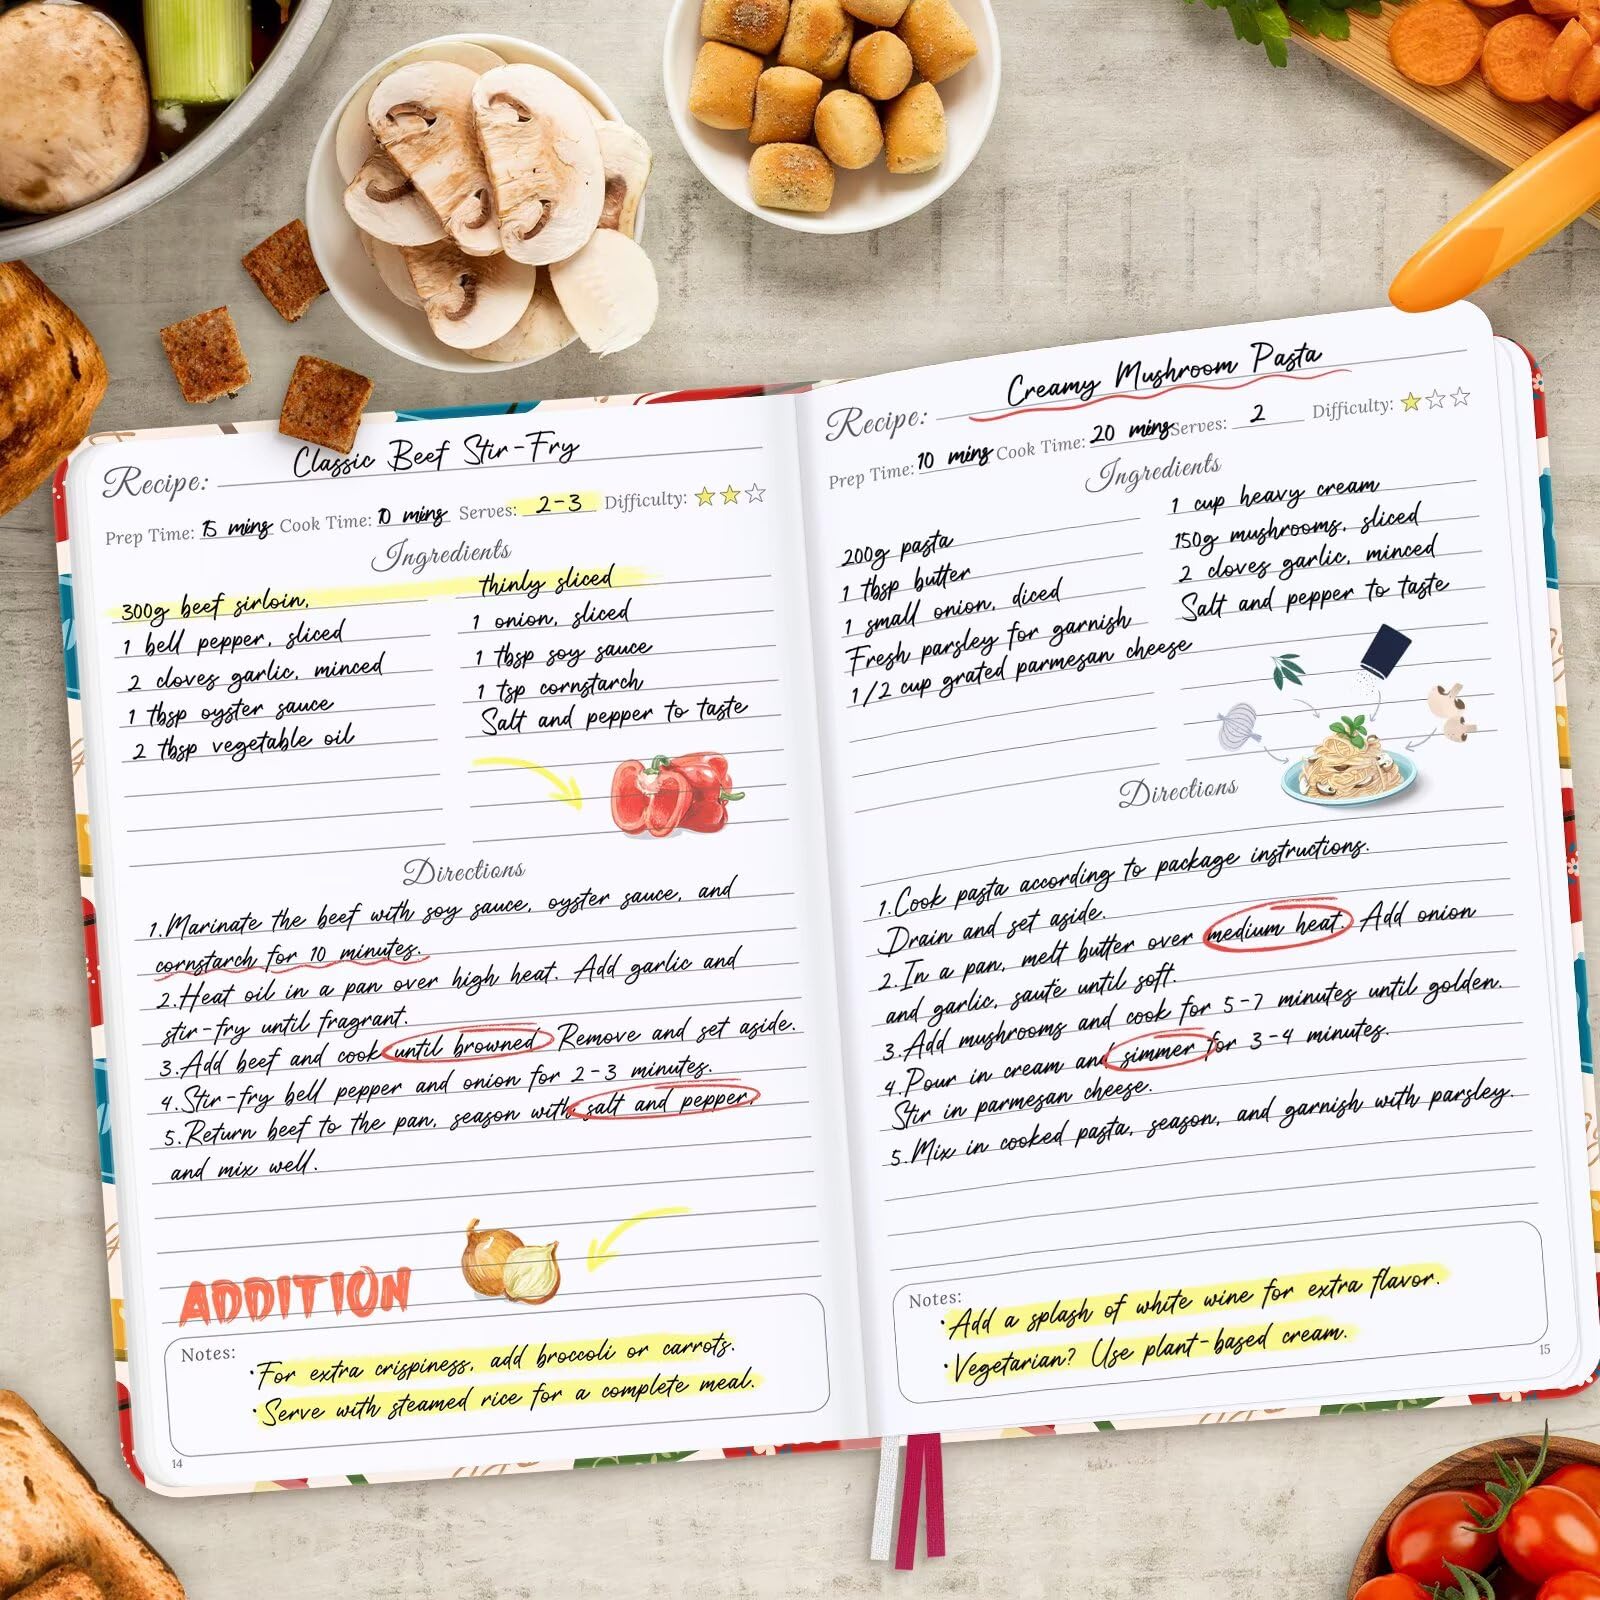 Recipe: Classic Beef Stir-Fry
Prep Time: 15 mins Cook Time: 10 mins Serves: 2-3 Difficulty:
Ingredients
300g beef sirloin, thinly sliced
1 bell pepper, sliced
1 onion, sliced
2 cloves garlic, minced
1 tbsp soy sauce
1 tbsp oyster sauce
1 tsp cornstarch
2 tbsp vegetable oil
Salt and pepper to taste
Directions
1.Marinate the beef with soy sauce, oyster sauce, and
cornstarch for 10 minutes.
2.Heat oil in a pan over high heat. Add garlic and
stir-fry until fragrant.
3.Add beef and cook until browned Remove and set aside.
4.Stir-fry bell pepper and onion for 2-3 minutes.
5.Return beef to the pan, season with salt and pepper,
and mix well.
ADDITION
Notes:
·For extra crispiness, add broccoli or carrots.
·Serve with steamed rice for a complete meal.
14
Recipe: Creamy Mushroom Pasta
Prep Time: 10 mins Cook Time: 20 mins Serves: 2 Difficulty:
Ingredients
200g pasta
1 tbsp butter
1 small onion, diced
Fresh parsley for garnish
1/2 cup grated parmesan cheese
1 cup heavy cream
150g mushrooms, sliced
2 cloves garlic, minced
Salt and pepper to taste
Directions
1.Cook pasta according to package instructions.
Drain and set aside.
2.In a pan, melt butter over medium heat. Add onion
and garlic, saute until soft.
3.Add mushrooms and cook for 5-7 minutes until golden.
4.Pour in cream and simmer for 3-4 minutes.
Stir in parmesan cheese.
5.Mix in cooked pasta, season, and garnish with parsley.
Notes:
·Add a splash of white wine for extra flavor.
·Vegetarian? Use plant-based cream.
15